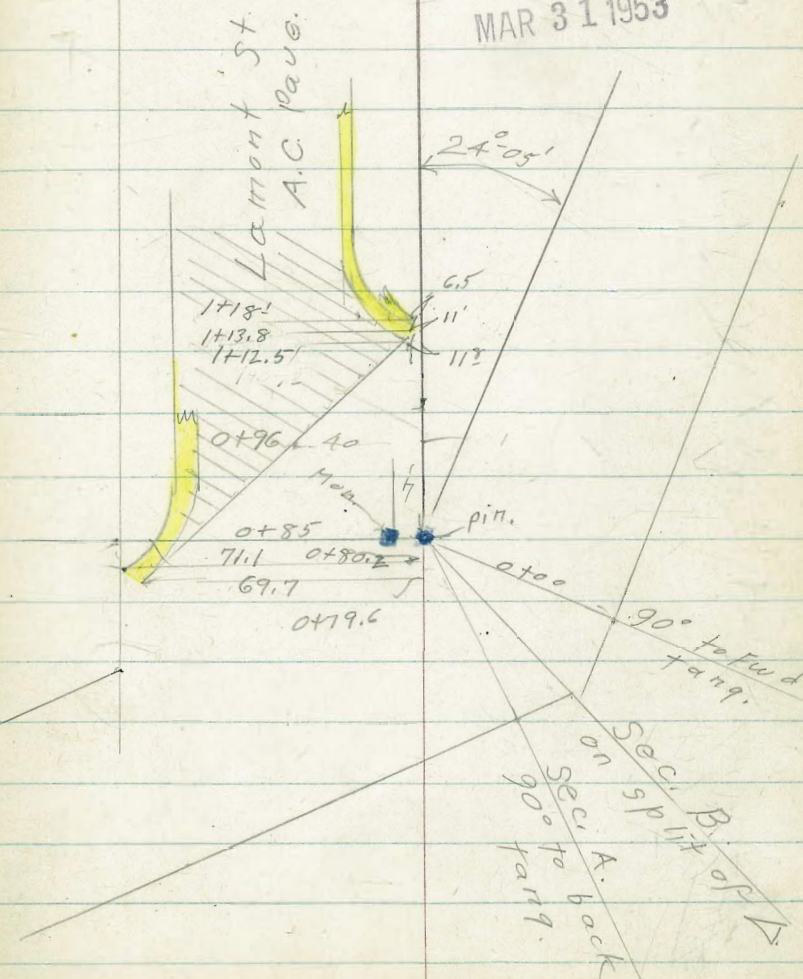 MAR 31 1953
Lamont St.
A.C. Pavg.
24°-05'
6.5
11'
11⁸
1+18.
1+13.8
1+12.5
0+96
40
Mon.
4'
pin.
0+85
71.1
0+80.2
69.7
0+79.6
0+00
90° to Fwd
tang.
Sec. B.
on split of Δ
Sec. A.
90° to back
tang.